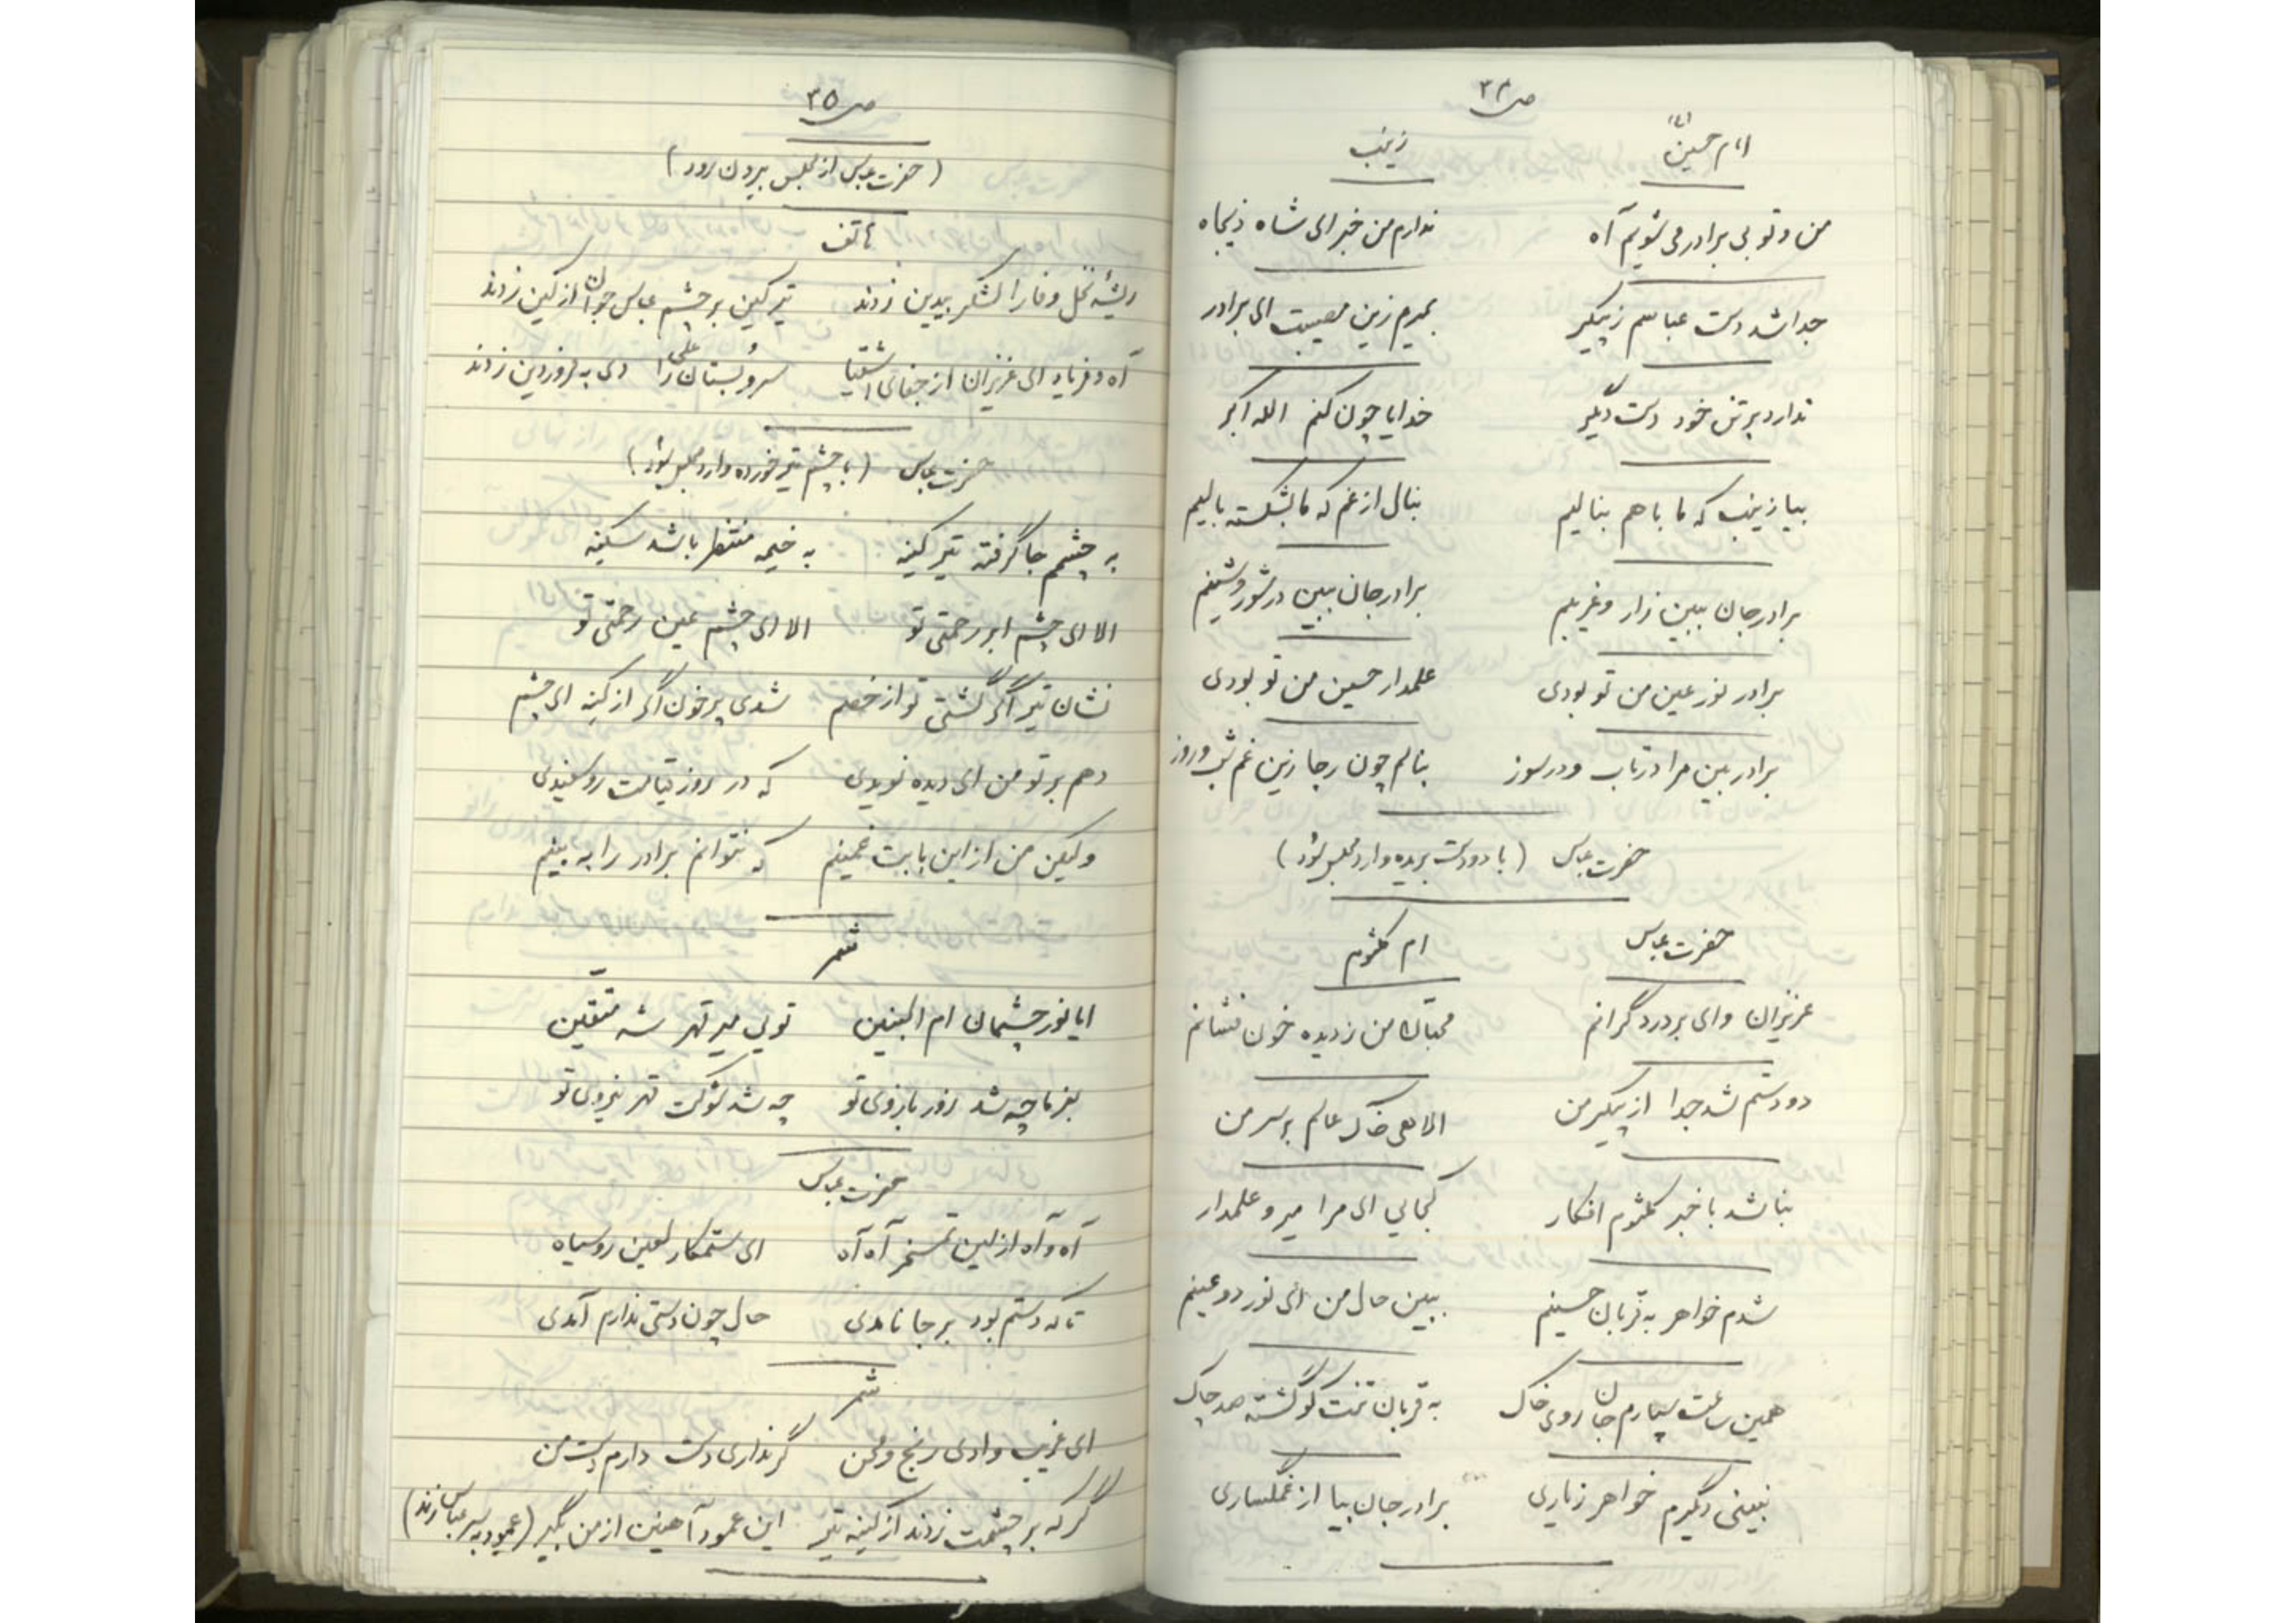 ص ۳۴
امام حسین (ع) زینب
من و تو بی برادر می شویم آه ندارم من خبر ای شاه ذیجاه
جدا شد دست عباسم ز پیکر بمیرم زین مصیبت ای برادر
ندارد بر تن خود دست دیگر خدایا چون کنم الله اکبر
بیا زینب که ما با هم بنالیم بنال از غم که ما بشکسته بالیم
برادر جان ببین زار و غریبم برادر جان ببین در شور و شینم
برادر نور عین من تو بودی علمدار حسین من تو بودی
برادر بین مرا در تاب و در سوز بنالم چون رجا زین غم شب و روز
حضرت عباس (با دو دست بریده وارد مجلس شود)
حضرت عباس ام کلثوم
عزیزان وای بر درد گرانم محبان من ز دیده خون فشانم
دو دستم شد جدا از پیکر من الا هی خاک عالم بر سر من
نباشد با خبر کلثوم افکار کجایی ای مرا میر و علمدار
شدم خواهر به قربان حسینم ببین حال من ای نور دو عینم
همین ساعت سپارم جان روی خاک به قربان تنت کو گشته صد چاک
نبینی دیگرم خواهر ز یاری برادر جان بیا از غمگساری
ص ۳۵
(حضرت عباس از مجلس بیرون رود)
هاتف
ریشه نخل وفا را لشکر بیدین زدند تیر کین بر چشم عباس جوان از کین زدند
آه و فریاد ای عزیزان از جفای اشقیا سرو بستان علی را دی به فروردین زدند
حضرت عباس (با چشم تیر خورده وارد مجلس شود)
به چشمم جا گرفته تیر کینه به خیمه منتظر باشد سکینه
الا ای چشم ابر رحمتی تو الا ای چشم عین رحمتی تو
نشان تیر اگر گشتی تو از خصم شدی پر خون اگر از کینه ای چشم
دهم بر تو من ای دیده نویدی که در روز قیامت رو سفیدی
ولیکن من از این بابت غمینم که نتوانم برادر را به بینم
شمر
ایا نور چشمان ام البنین تویی میر قهر شه متقین
بفرما چه شد زور بازوی تو چه شد شوکت قهر نیروی تو
حضرت عباس
آه و آه از این تمسخر آه آه ای ستمکار لعین رو سیاه
تا که دستم بود بر جا نامدی حال چون دستی ندارم آمدی
شمر
ای غریب وادی رنج و محن گر نداری دست دارم دست من
گر که بر چشمت زدند از کینه تیر این عمود آهنین از من بگیر (عمود به سر عباس زند)